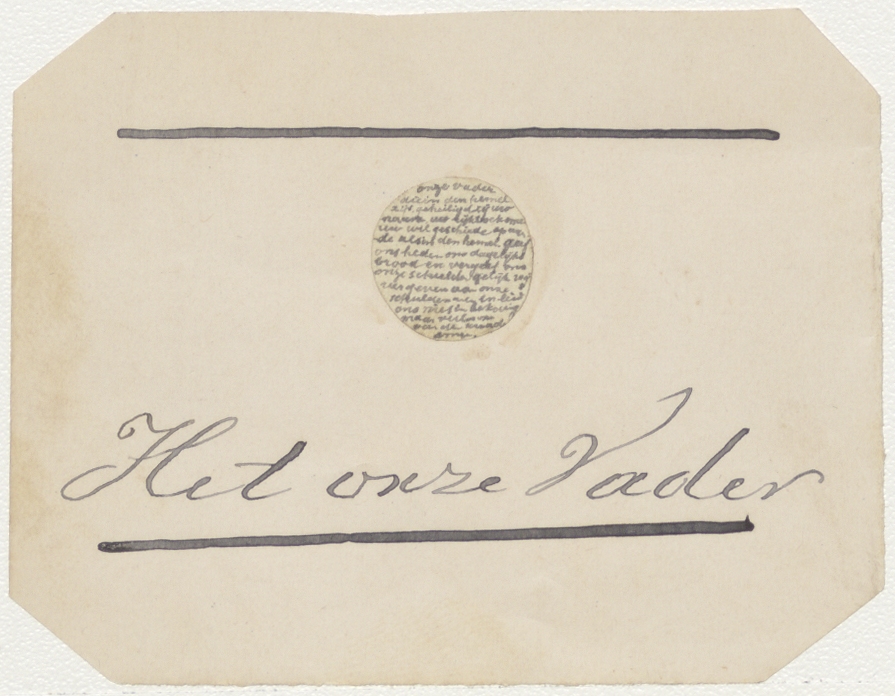 onze vader
die in den hemel
zijt geheiligd zij uw
uw wil geschiede op aar
de als in den hemel geef
ons heden ons dagelijks
brood en vergeef ons
onze schulden gelijk wij
vergeven aan onze
schuldenaren en leid
ons niet in bekoring
maar verlos ons
van de kwade
amen.
Het onze Vader